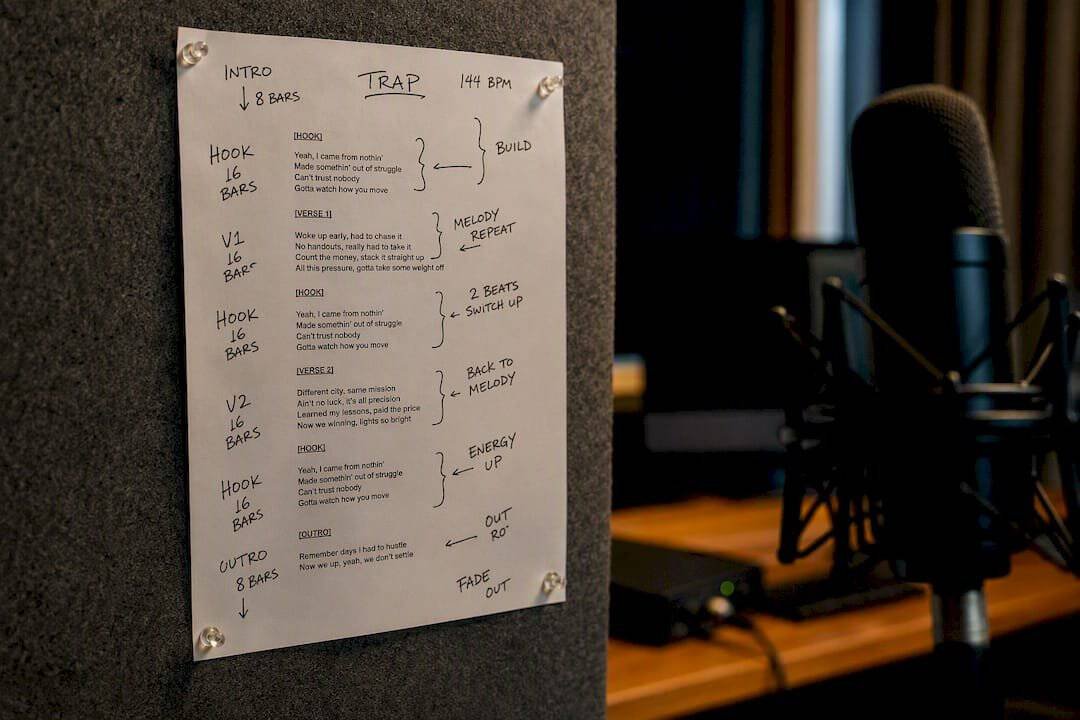 INTRO TRAP 144 BPM
↓ 8 BARS
[HOOK]
HOOK
16
BARS
Yeah, I came from nothin'
Made somethin' out of struggle
Can't trust nobody
Gotta watch how you move
← BUILD
[VERSE 1]
V1
16
BARS
Woke up early, had to chase it
No handouts, really had to take it
Count the money, stack it straight up
All this pressure, gotta take some weight off
MELODY
← REPEAT
[HOOK]
HOOK
16
BARS
Yeah, I came from nothin'
Made somethin' out of struggle
Can't trust nobody
Gotta watch how you move
2 BEATS
← SWITCH UP
[VERSE 2]
V2
16
BARS
Different city, same mission
Ain't no luck, it's all precision
Learned my lessons, paid the price
Now we winning, lights so bright
BACK TO
← MELODY
[HOOK]
HOOK
16
BARS
Yeah, I came from nothin'
Made somethin' out of struggle
Can't trust nobody
Gotta watch how you move
ENERGY
← UP
[OUTRO]
OUTRO
8 BARS
↓
Remember days I had to hustle
Now we up, yeah, we don't settle
← OUT
RO
FADE
OUT